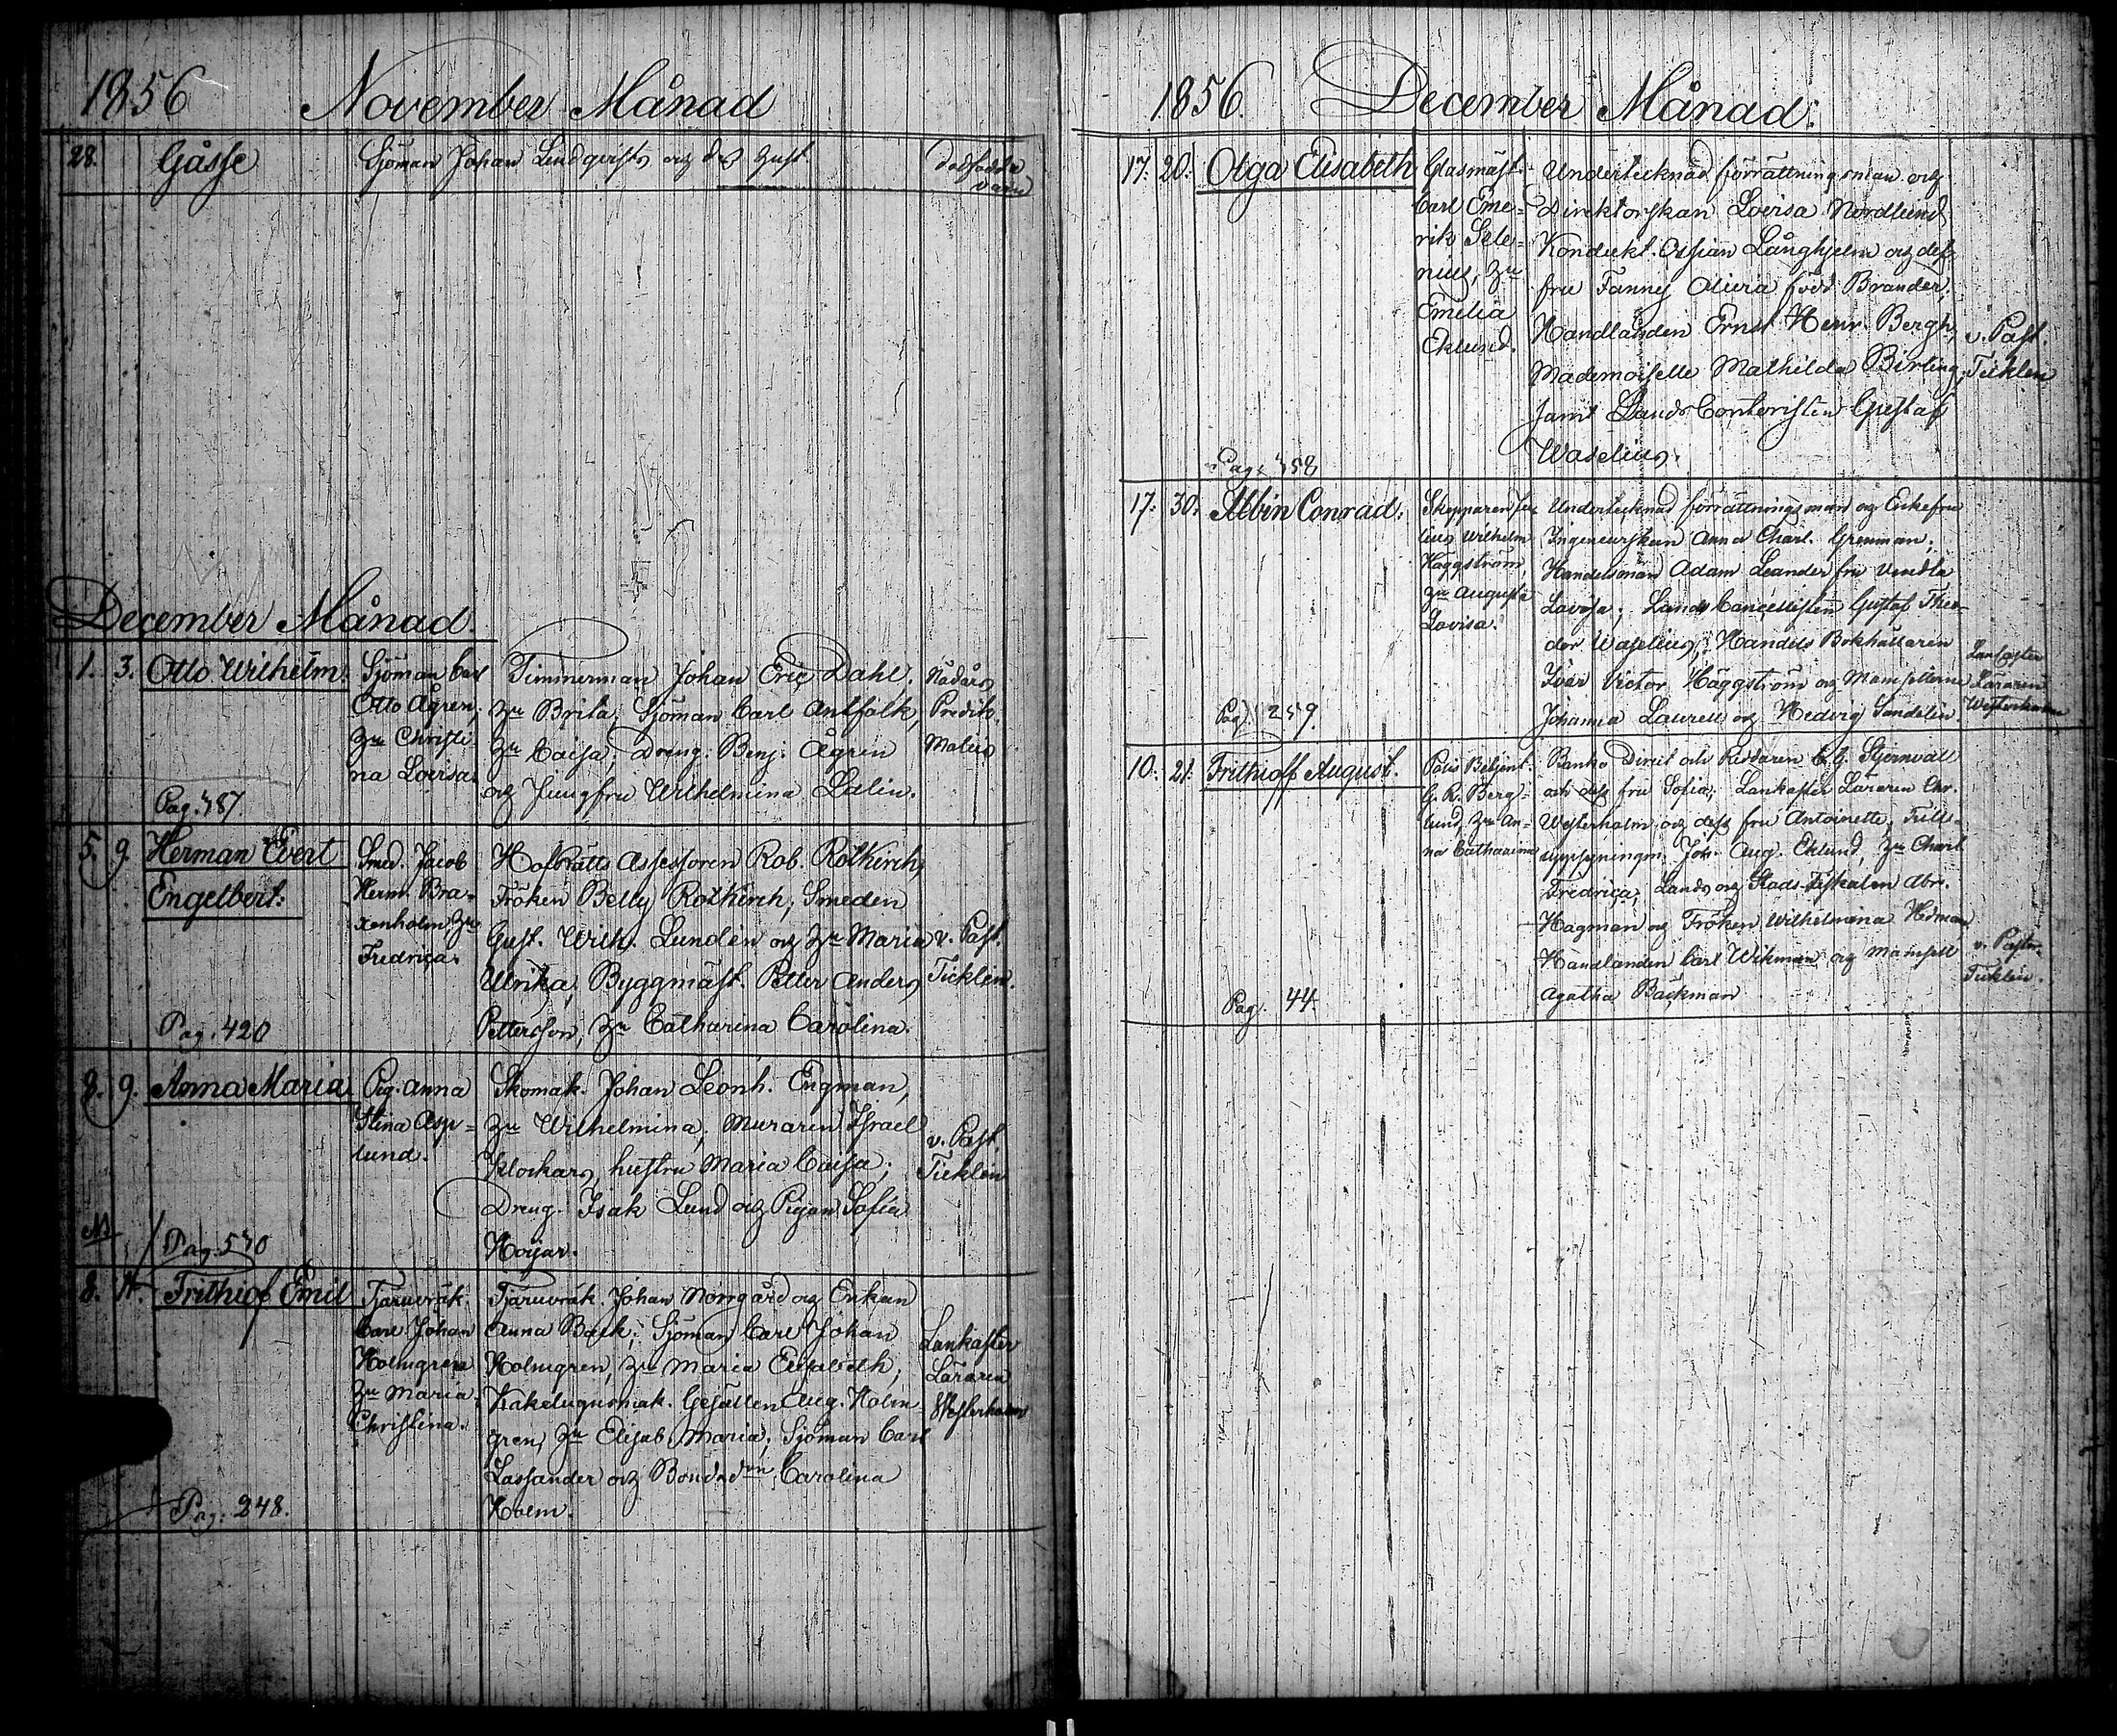 1856 November Månad
28. Gåsse Sjöman Johan Lindqvists och des hust. dödfödda
barn
December Månad.
1. 3. Otto Wilhelm. Sjöman Carl
Otto Ågren,
hu Christi
na Lovisa.
Timmerman Johan Eric Dahl,
hu Brita, Sjöman Carl Antfolk,
hu Caisa, Dreng. Benj. Ågren
och Jungfru Wilhelmina Lalin.
Nådårs
Predik.
Malin
Pag. 387.
5. 9. Herman Evert
Engelbert.
Smed. Jacob
Herm. Bra-
xenholm, hu
Fredrica.
HofRätts Assessoren Rob. Rotkirch,
Fröken Betty Rotkirch; Smeden
Gust. Wilh. Lundén och hu Maria
Ulrika, Byggmäst. Petter Anders
Pettersson, hu Catharina Carolina.
v. Past.
Ticklén.
Pag. 420
8. 9. Anna Maria
Pig. Anna
Stina Asp-
lund.
Skomak. Johan Leonh. Engman,
hu Wilhelmina; Muraren Israel
Klockars, hustru Maria Caisa;
Dreng. Isak Lund och Pigan Sofia
v. Past.
Ticklén
Pag. 530
8. 14. Frithiof Emil
Tjäruvräk.
Carl Johan
Holmgren
hu Maria
Christina.
Tjäruvräk. Johan Norrgård och Enkan
Anna Back; Sjöman Carl Johan
Holmgren, hu Maria Elisabeth;
Kakelugnsmak. Gesällen Aug. Holm-
gren, hu Elisab. Maria; Sjöman Carl
Lassander och Bonded:on Carolina
Holm.
Lankaster
Läraren
Westerholm
Pag. 248.
1856. December Månad.
17. 20. Olga Elisabeth
Glasmäst.
Carl Eme-
rik Sele-
nius, hu
Emelia
Eklund.
Undertecknad förrättningsman och
Direktorskan Lovisa Nordlund,
Kondukt. Ossian Långhjelm och dess
fru Fanny Alivia född Brander,
Handlanden Ernst Henr. Bergh,
Mademoiselle Mathilda Birling,
samt LandsContoristen Gustaf
Waselius.
v. Past.
Ticklén
Pag. 358
17. 30. Albin Conrad.
Skepparen Ju-
lius Wilhelm
Häggström,
hu Augusta
Lovisa.
Undertecknad förrättningsman och Enkefru
Ingenieurskan Anna Charl. Grenman;
Handelsman Adam Leander fru Vendla
Lovisa; Lands Cancellisten Gustaf Theo-
dor Waselius, Handels Bokhållaren
Ivar Victor Häggström och Mamsellerne
Johanna Laurell och Hedvig Sandelin
Lankaster
Läraren
Westerholm
Pag. 259.
10. 21. Frithioff August.
Polis Betjent.
G. R. Berg-
lund, hu An-
na Catharina
Banko Direct och Riddaren C. G. Stjernvall
och dess fru Sofia; Lankaster Läraren Chr.
Westerholm och dess fru Antoinette, Tull-
uppsyningm. Joh. Aug. Eklund, hu Charl.
Fredrica; Lands och Stads-fiskalen Abr.
Hagman och Fröken Wilhelmina Hedman
Handlanden Carl Wikman och Mamsell
Agatha Bäckman
v. Pastor
Ticklén.
Pag. 44.